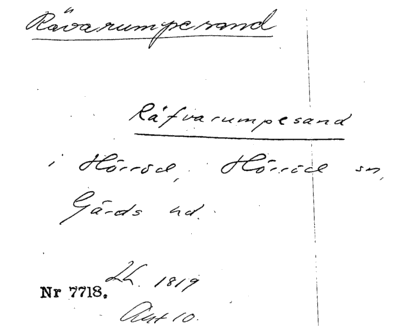 Rävarumpesand
Räfvarumpesand
i Hörröd, Hörröd sn,
Gärds hd.
Lh. 1819
Nr 7718.
Akt 10.